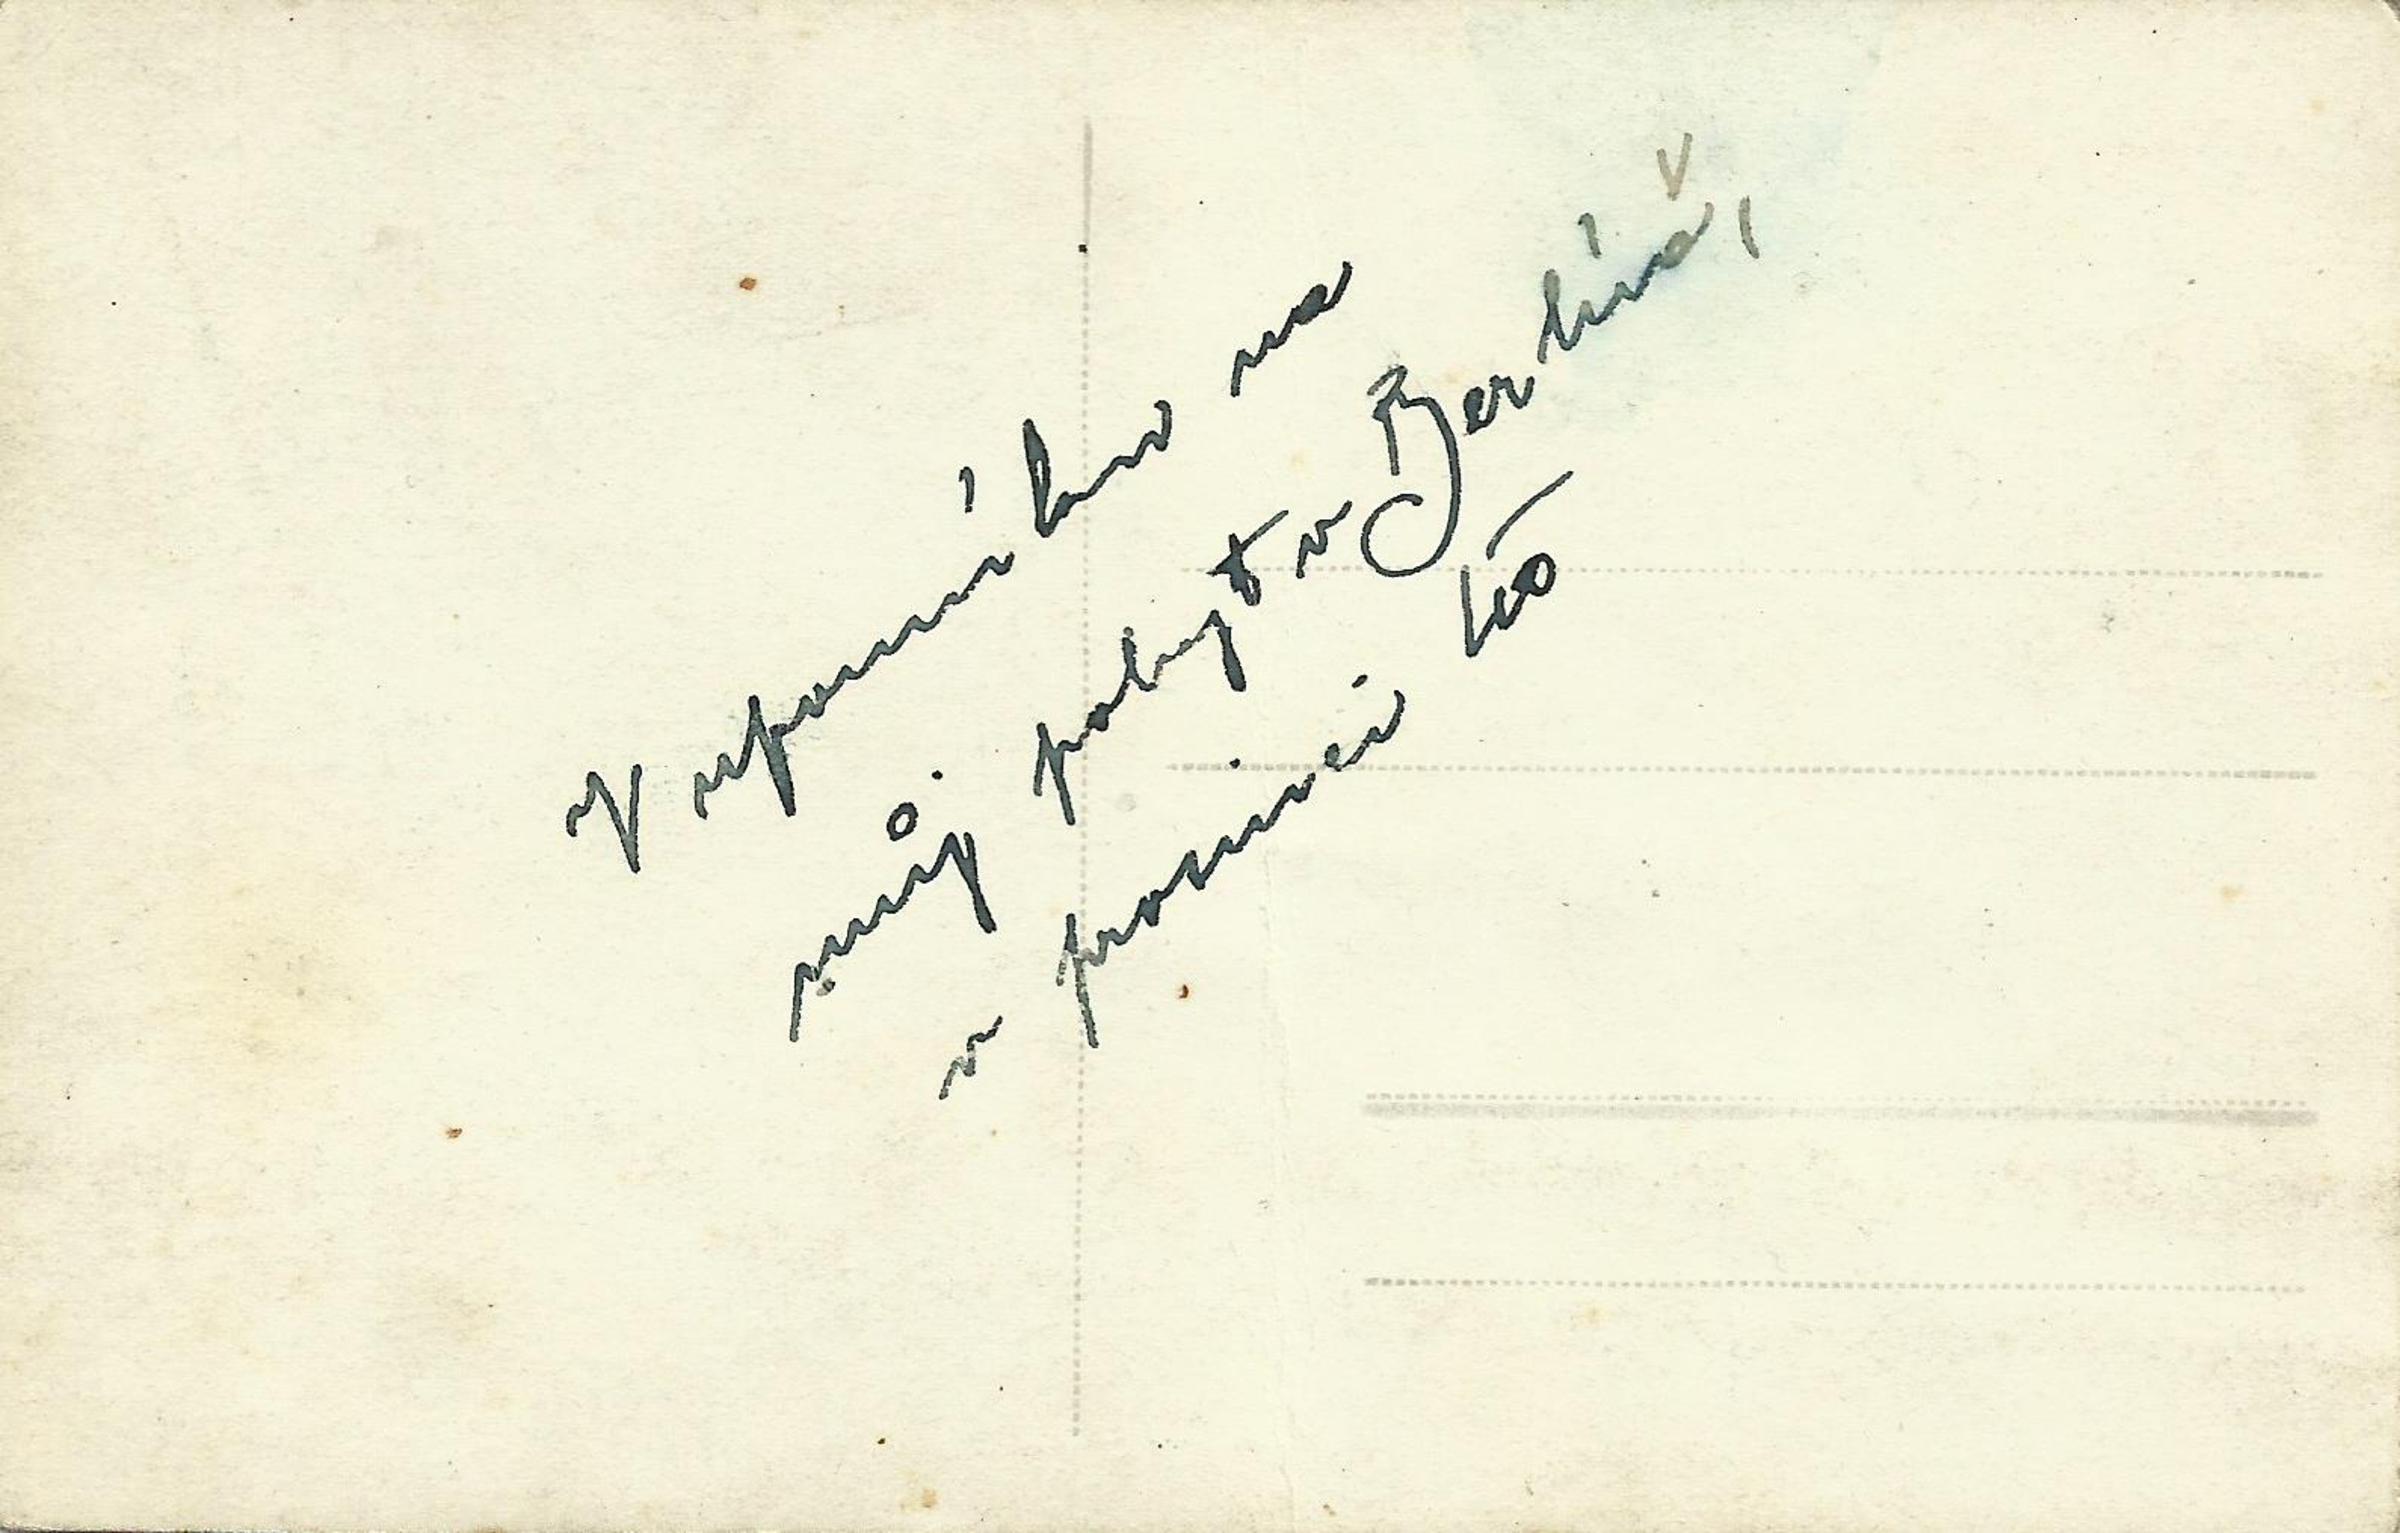 Vzpomínka na
můj pobyt v Berlíně,
v prosinci